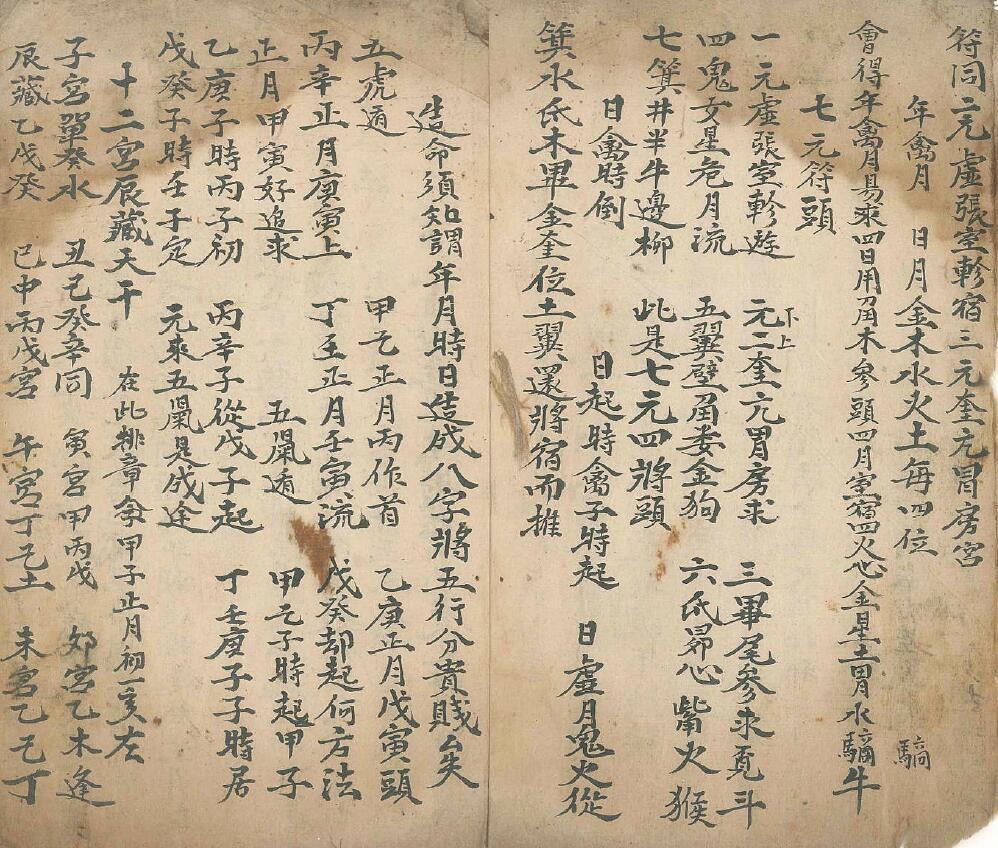 符同二元虛張室軫宿三元奎亢胃房宮
年禽月　日月金木水火土每四位
會得年禽月易求四日用角木參頭四月室宿四火心金星土胃水驕牛
驕
七元符頭
一元虛張室軫遊　元二奎亢胃房求　三畢尾參求覓斗
下上
四鬼女星危月流　五翼壁角娄金狗　六氐昴心觜火猴
七箕井半牛邊柳　此是七元四將頭
日禽時倒　日起時禽子時起　日虛月鬼火從
箕水氐木畢金奎位土翼還將宿而推
造命須知謂年月時日造成八字將五行分貴賤矣
五虎遁　甲己正月丙作首　乙庚正月戊寅頭
丙辛正月庚寅上　丁壬正月壬寅流　戊癸却起何方法
正月甲寅好追求　五鼠遁　甲己子時起甲子
乙庚子時丙子初　丙辛子從戊子起　丁壬庚子子時居
戊癸子時壬子定　元來五鼠是成途
十二宮辰藏天干　在此排章余甲子正月初一亥左
子宮單癸水　丑己癸辛同　寅宮甲丙戊　卯宮乙木逢
辰藏乙戊癸　巳中丙戊宮　午宮丁己土　未宮乙己丁